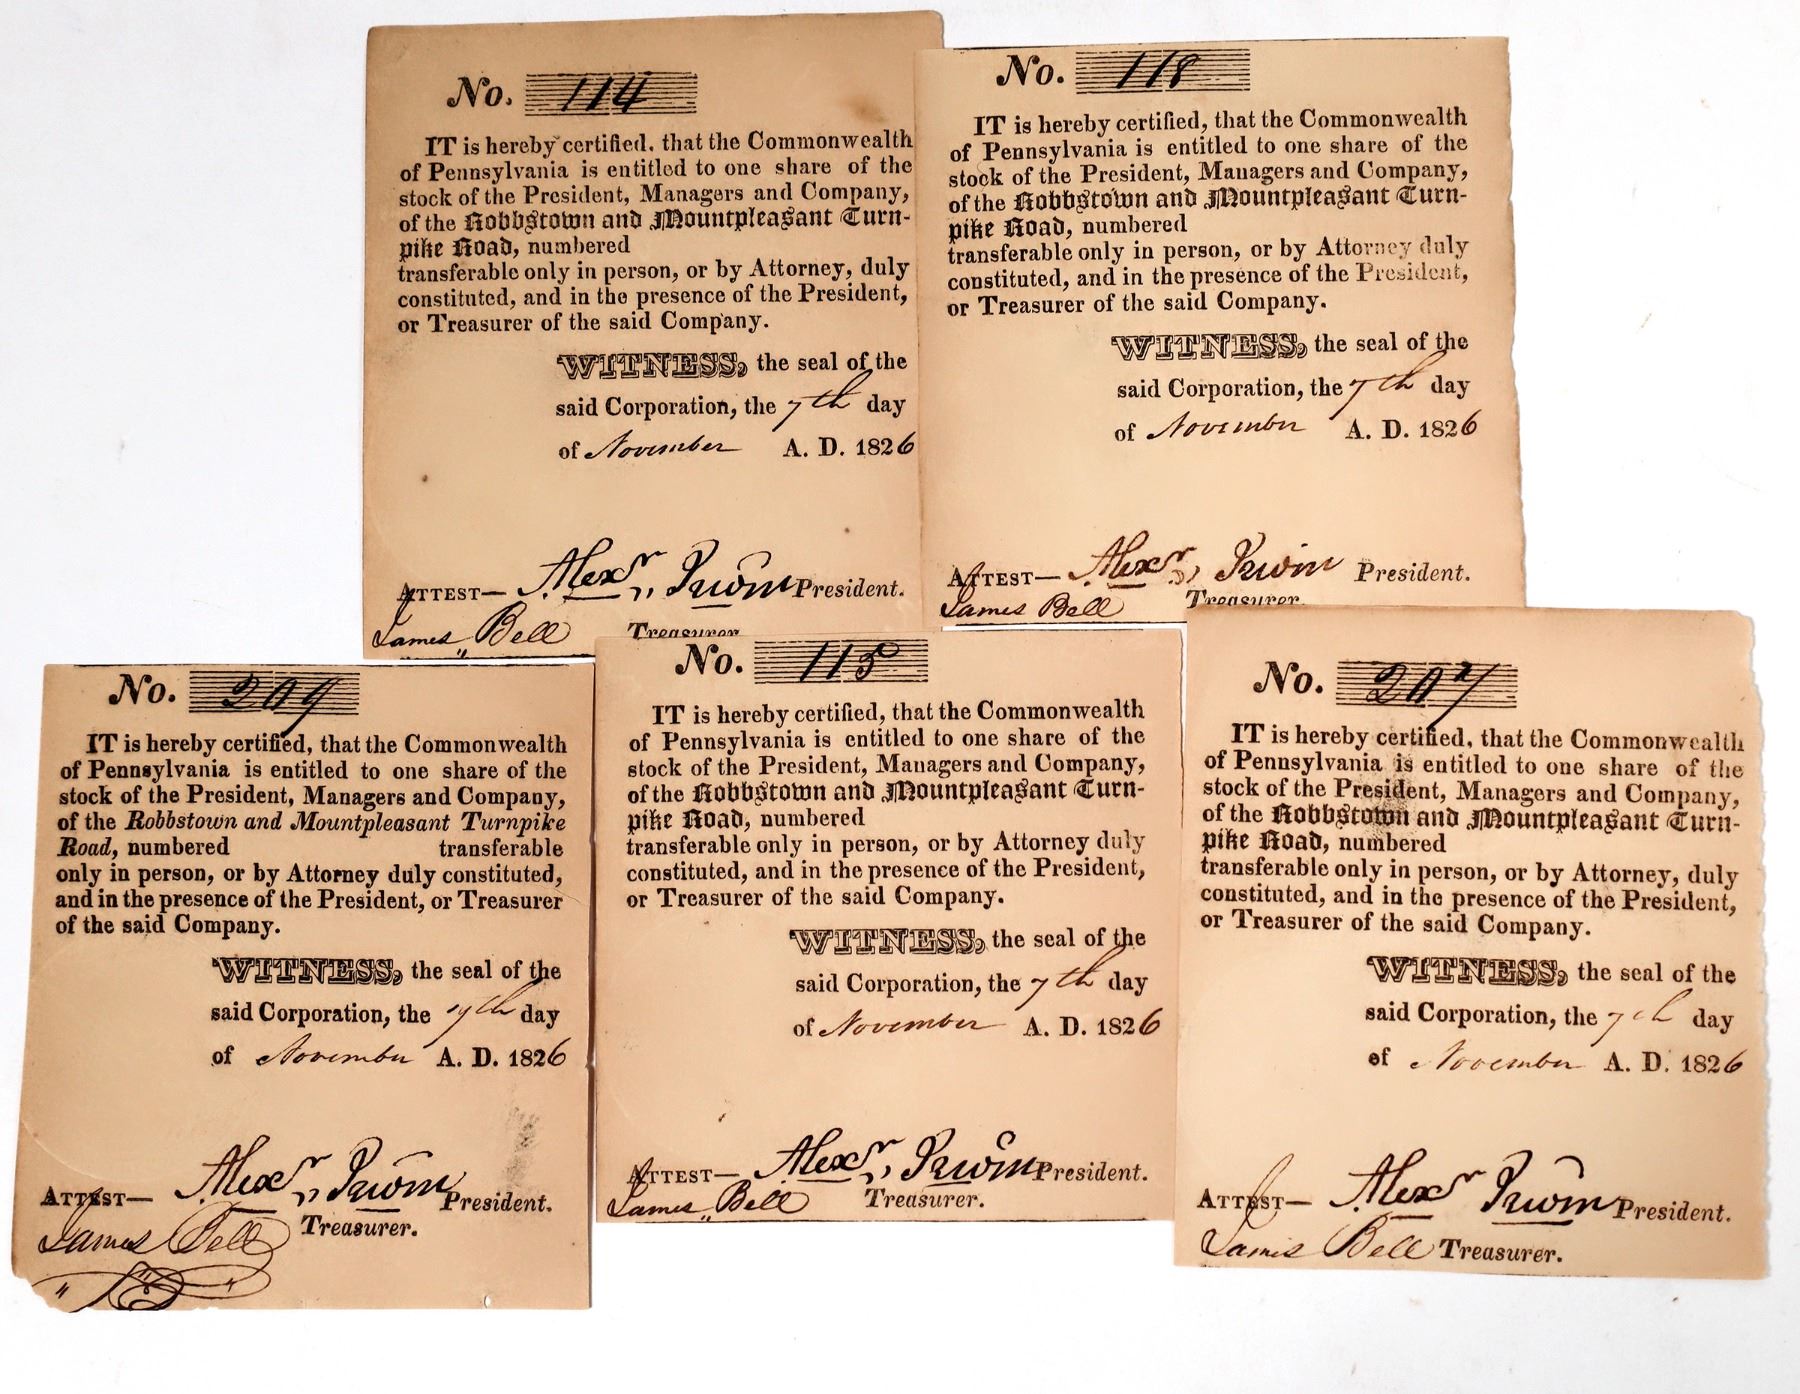 No. 114
IT is hereby certified, that the Commonwealth
of Pennsylvania is entitled to one share of the
stock of the President, Managers and Company,
of the Robbstown and Mountpleasant Turn-
pike Road, numbered
transferable only in person, or by Attorney, duly
constituted, and in the presence of the President,
or Treasurer of the said Company.
WITNESS, the seal of the
said Corporation, the 7th day
of November A. D. 1826
ATTEST— Alexr Irwin President.
James Bell Treasurer
No. 118
IT is hereby certified, that the Commonwealth
of Pennsylvania is entitled to one share of the
stock of the President, Managers and Company,
of the Robbstown and Mountpleasant Turn-
pike Road, numbered
transferable only in person, or by Attorney duly
constituted, and in the presence of the President,
or Treasurer of the said Company.
WITNESS, the seal of the
said Corporation, the 7th day
of November A. D. 1826
ATTEST— Alexr Irwin President.
James Bell Treasurer.
No. 209
IT is hereby certified, that the Commonwealth
of Pennsylvania is entitled to one share of the
stock of the President, Managers and Company,
of the Robbstown and Mountpleasant Turnpike
Road, numbered transferable
only in person, or by Attorney duly constituted,
and in the presence of the President, or Treasurer
of the said Company.
WITNESS, the seal of the
said Corporation, the 7th day
of November A. D. 1826
ATTEST— Alexr Irwin President.
James Bell Treasurer.
No. 115
IT is hereby certified, that the Commonwealth
of Pennsylvania is entitled to one share of the
stock of the President, Managers and Company,
of the Robbstown and Mountpleasant Turn-
pike Road, numbered
transferable only in person, or by Attorney duly
constituted, and in the presence of the President,
or Treasurer of the said Company.
WITNESS, the seal of the
said Corporation, the 7th day
of November A. D. 1826
ATTEST— Alexr Irwin President.
James Bell Treasurer.
No. 207
IT is hereby certified, that the Commonwealth
of Pennsylvania is entitled to one share of the
stock of the President, Managers and Company,
of the Robbstown and Mountpleasant Turn-
pike Road, numbered
transferable only in person, or by Attorney, duly
constituted, and in the presence of the President,
or Treasurer of the said Company.
WITNESS, the seal of the
said Corporation, the 7th day
of November A. D. 1826
ATTEST— Alexr Irwin President.
James Bell Treasurer.